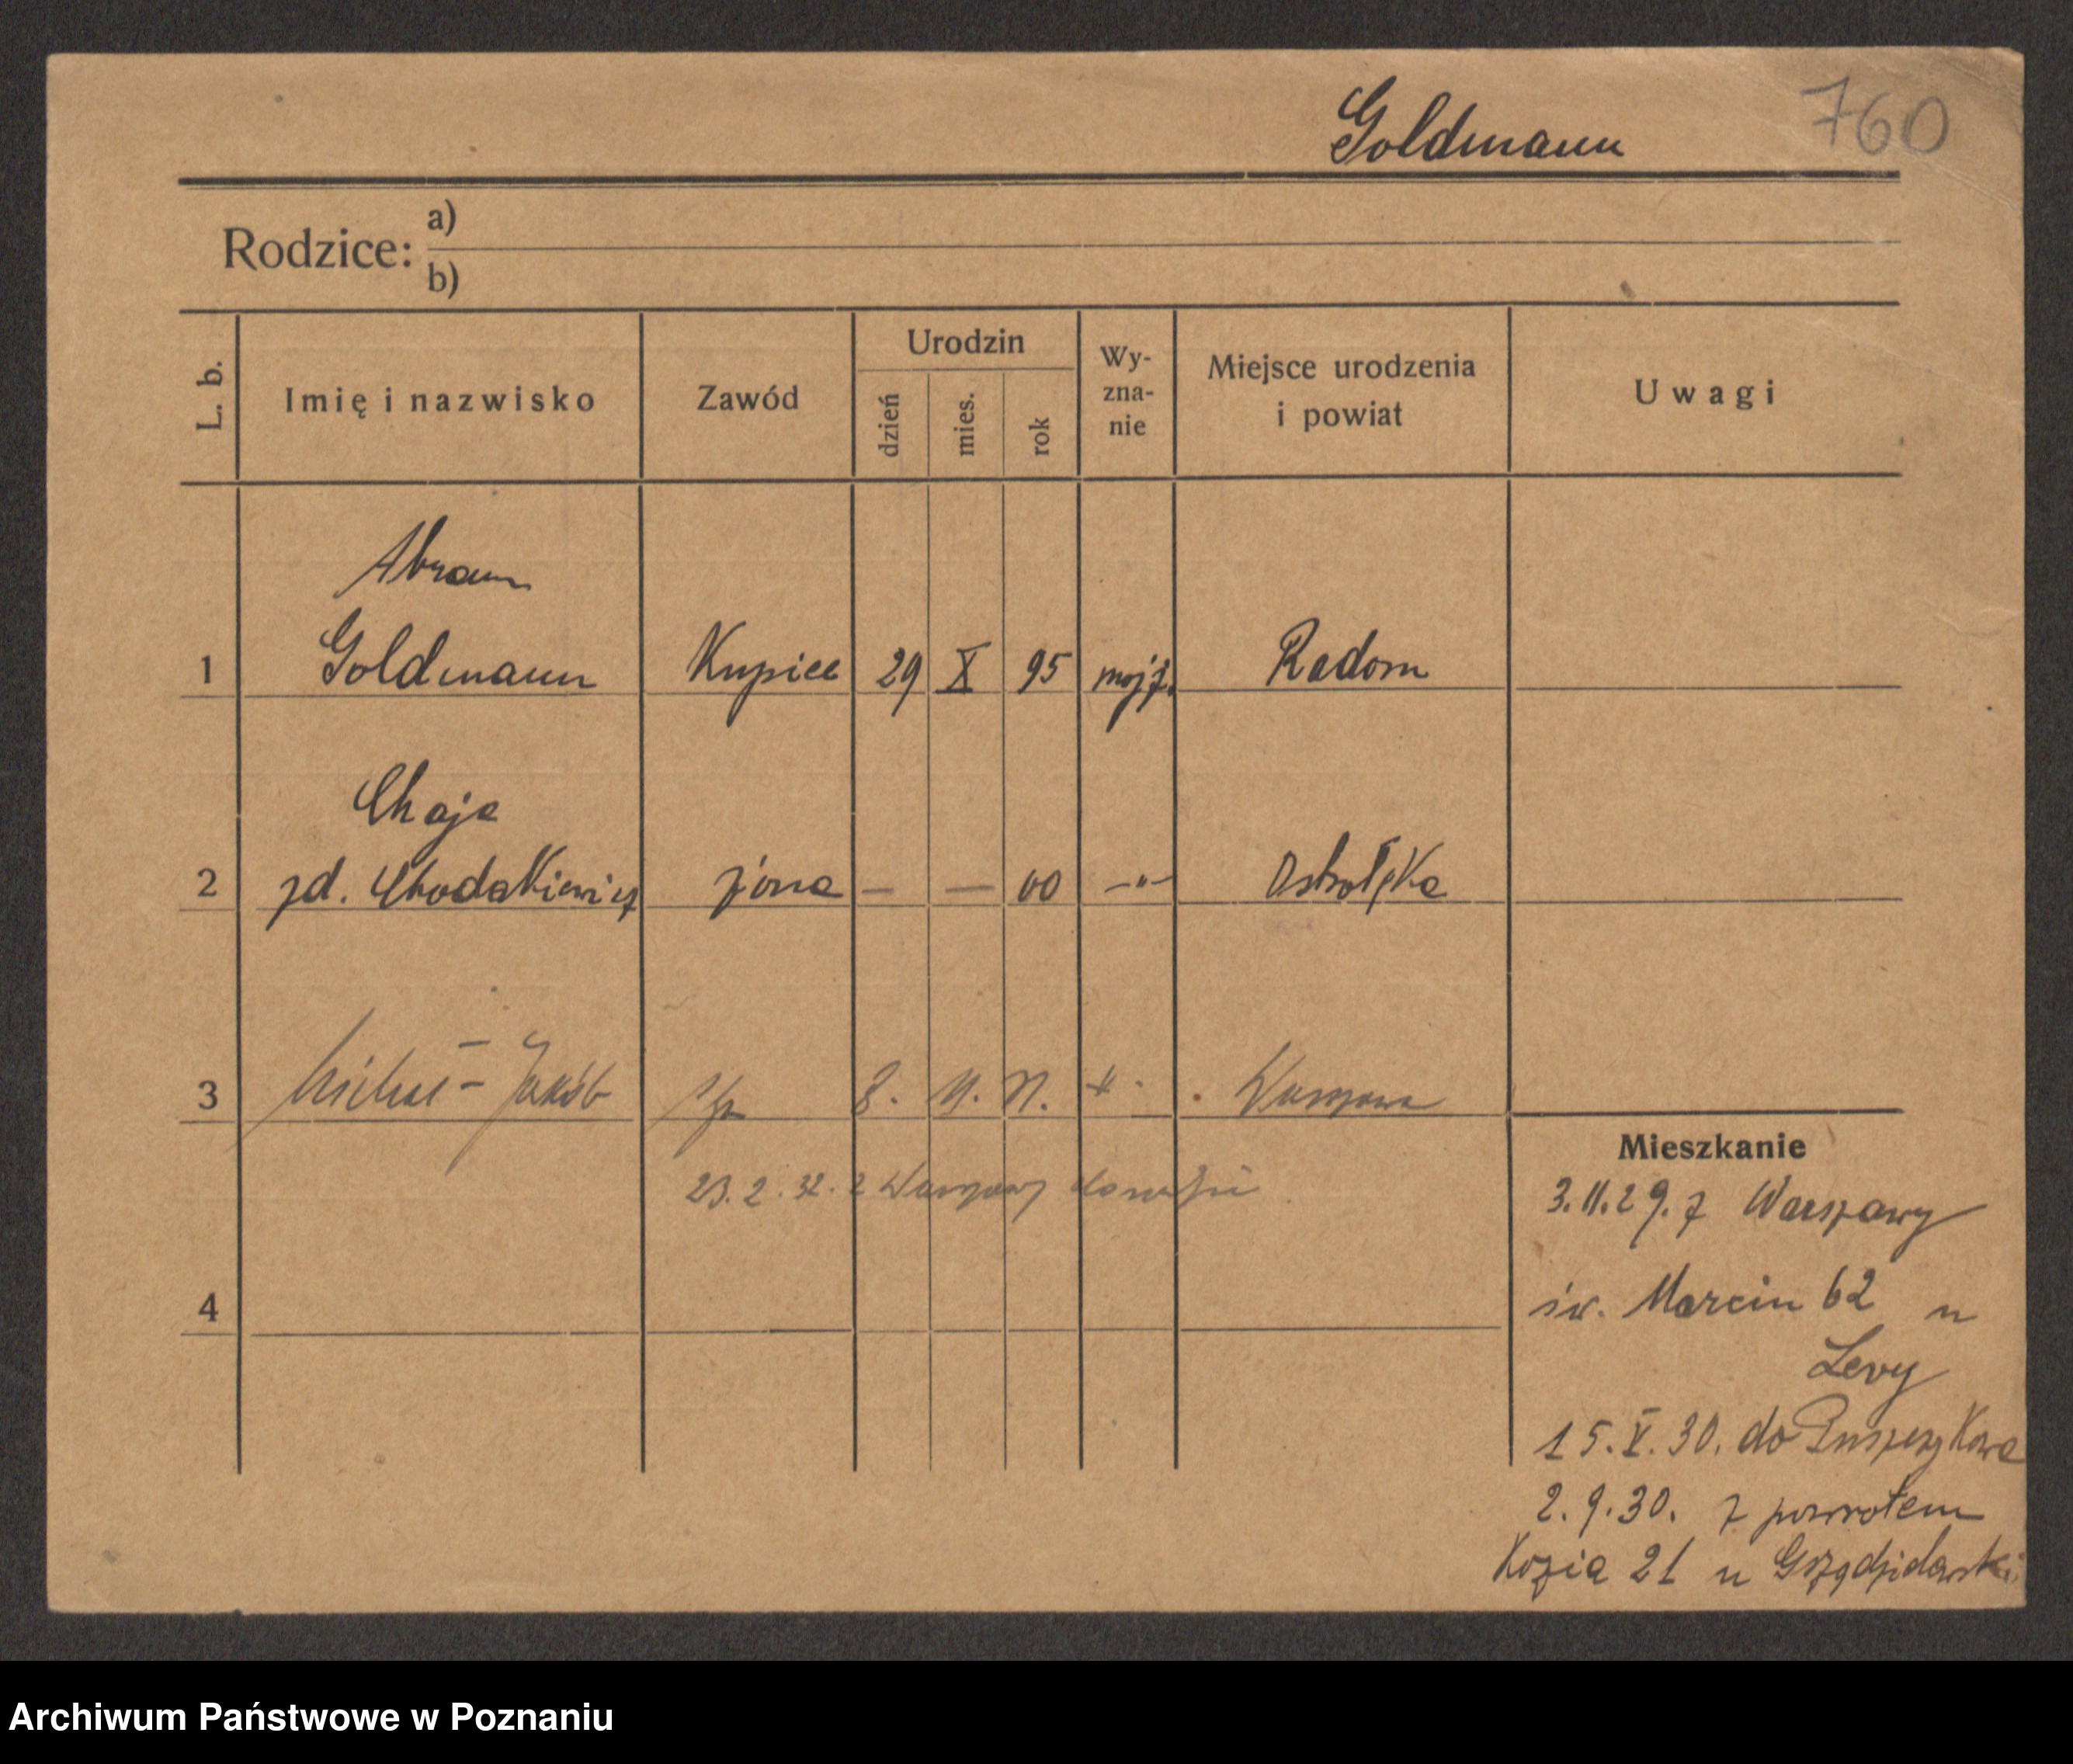 Goldmann 760
Rodzice: a)
b)
L. b. Imię i nazwisko Zawód Urodzin dzień mies. rok Wy-zna-nie Miejsce urodzenia i powiat Uwagi
Abram
1 Goldmann Kupiec 29 X 95 mojż. Radom
Chaja
2 zd. Chodakiewicz żona — — 00 —"— Ostrołęka
3 Jakób 8. Warszawa
Mieszkanie
23.2.32. z Warszawy
3.11.29. z Warszawy
4 św. Marcin 62 u
Levy
15.V.30. do Puszczykowa
2.9.30. z powrotem
Kozia 21 u
Archiwum Państwowe w Poznaniu